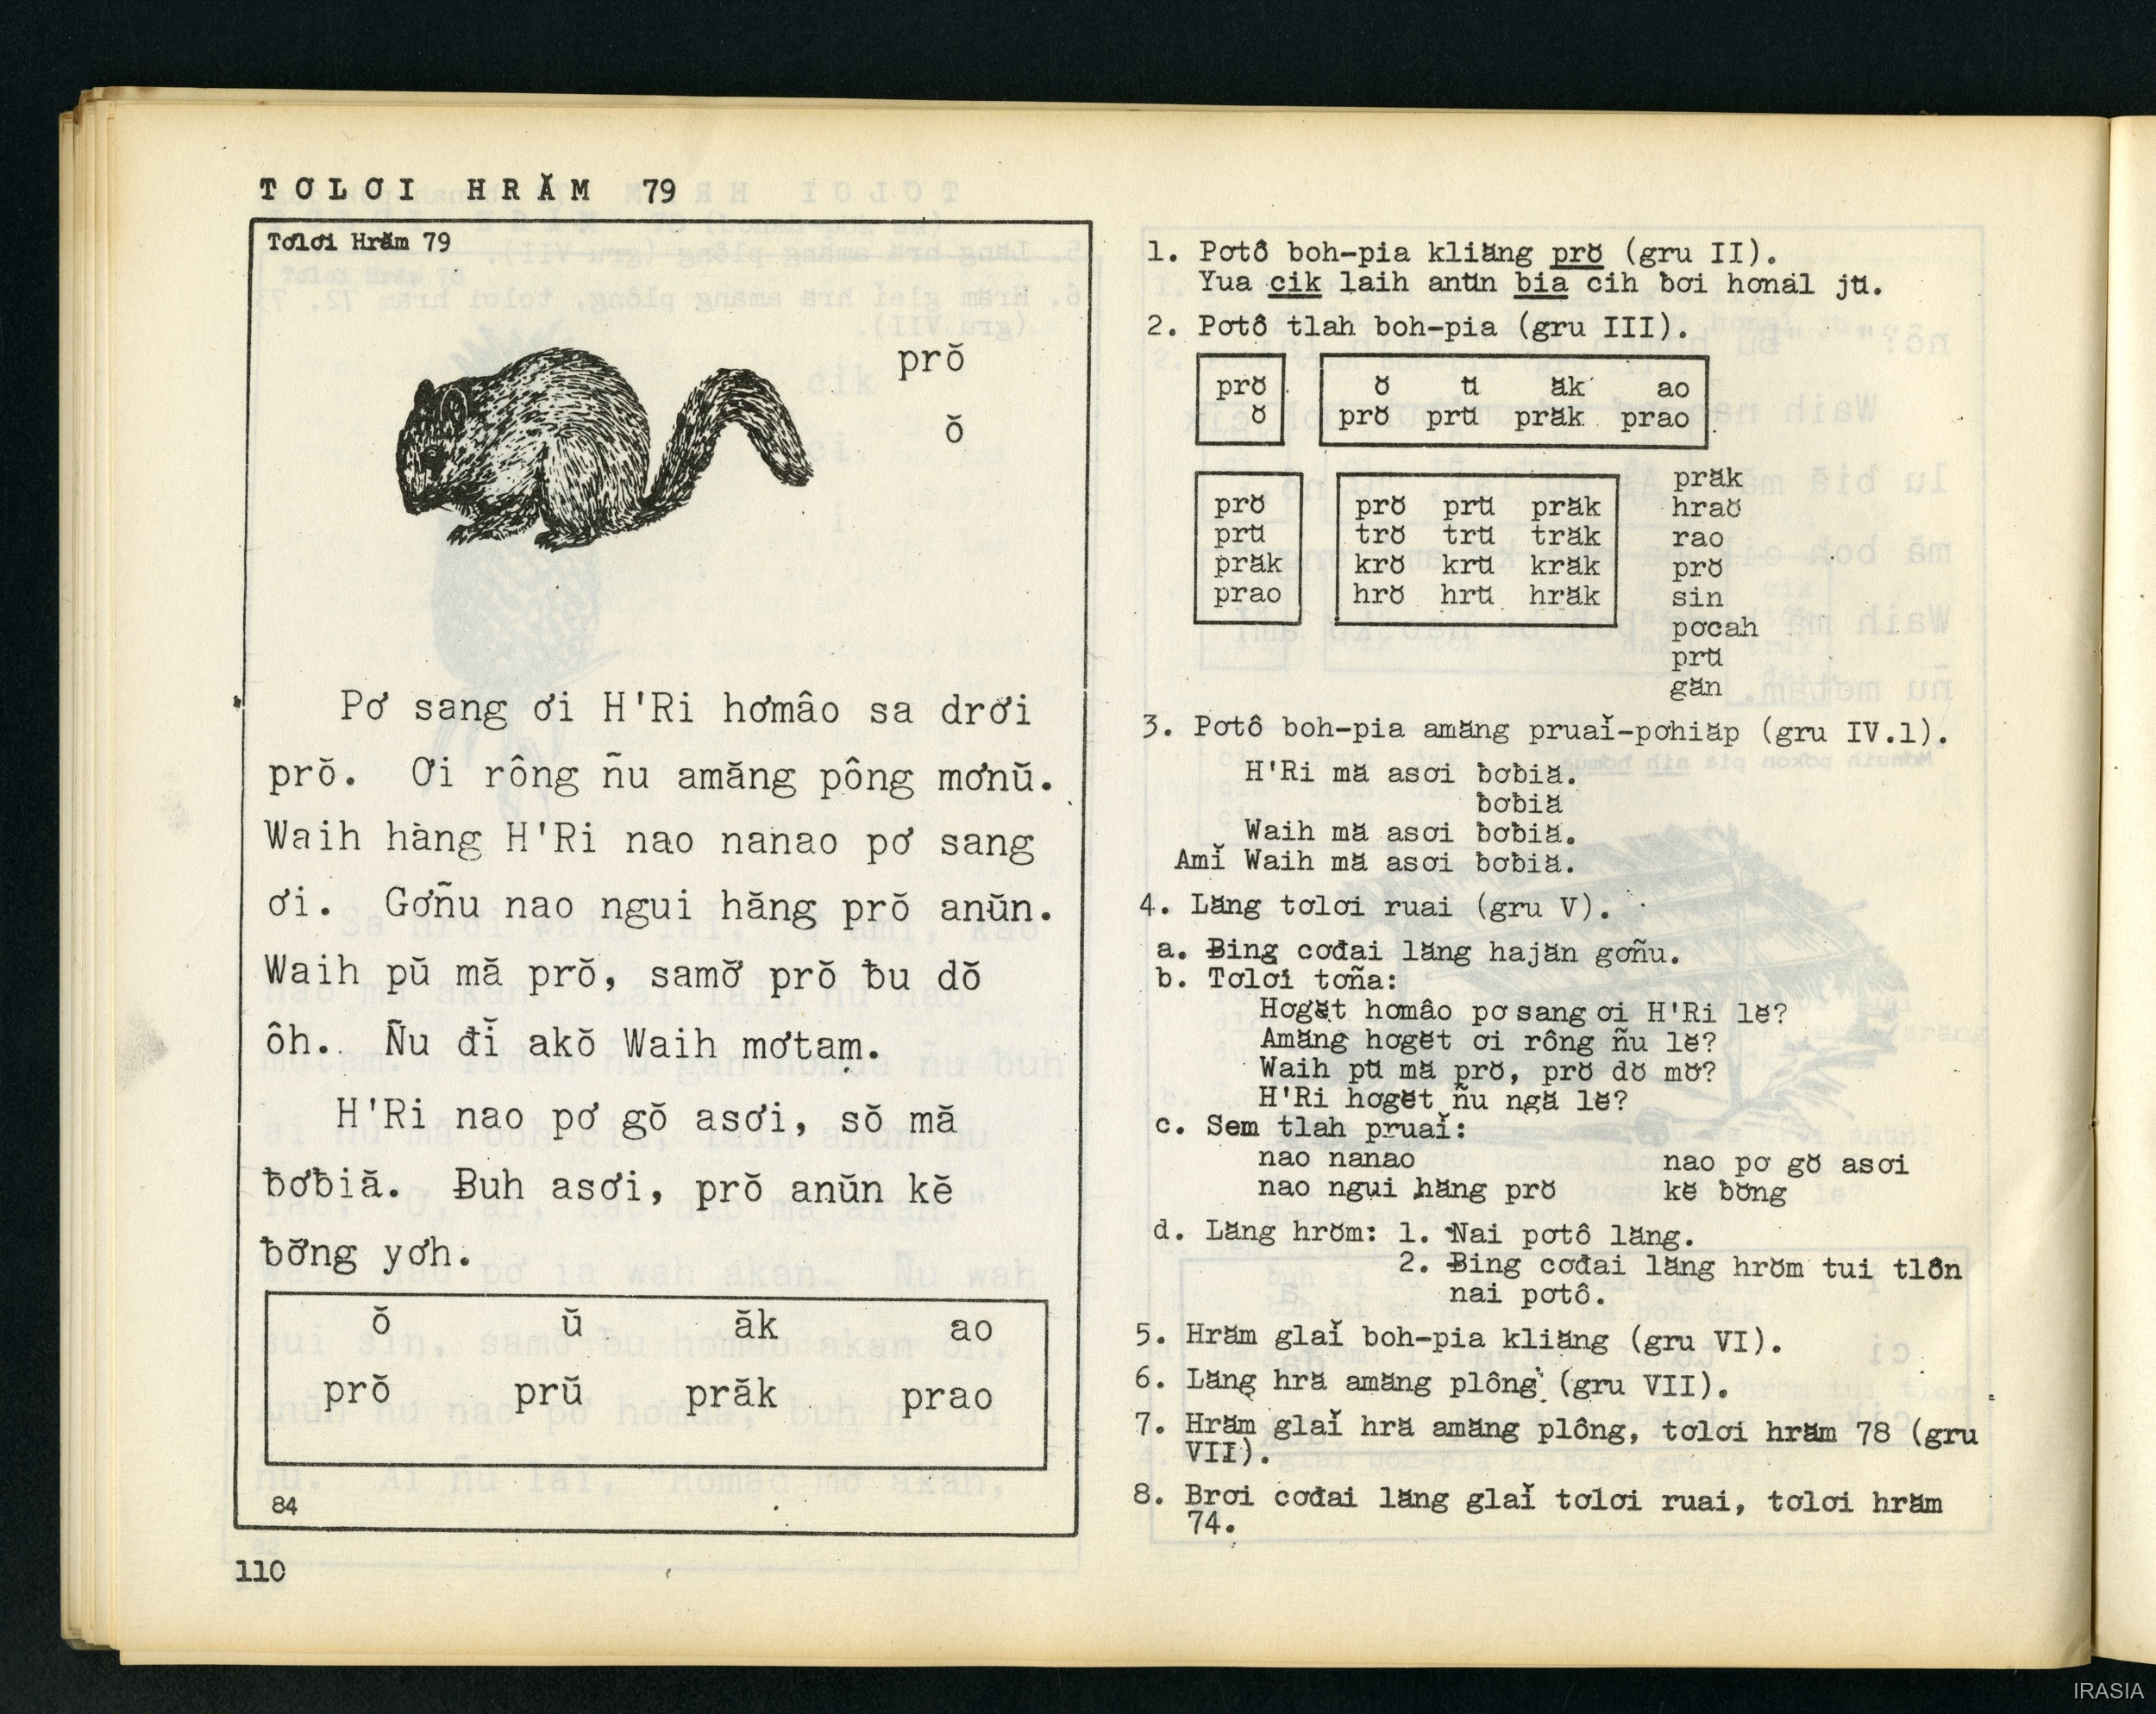 TƠLƠI HRĂM 79
Tơlơi Hrăm 79
prŏ
ŏ
Pơ sang ơi H'Ri hơmâo sa drơi
prŏ. Ơi rông ñu amăng pông mơnŭ.
Waih hàng H'Ri nao nanao pơ sang
ơi. Gơñu nao ngui hăng prŏ anŭn.
Waih pŭ mă prŏ, samơ̆ prŏ ƀu dŏ
ôh. Ñu đĭ akŏ Waih mơtam.
H'Ri nao pơ gŏ asơi, sŏ mă
ƀơƀiă. Ƀuh asơi, prŏ anŭn kĕ
ƀơ̆ng yơh.
ŏ ŭ ăk ao
prŏ prŭ prăk prao
84
110
1. Pơtô boh-pia kliăng prŏ (gru II).
Yua cik laih anŭn bia cih ƀơi hơnal jŭ.
2. Pơtô tlah boh-pia (gru III).
prŏ
ŏ
ŏ ŭ ăk ao
prŏ prŭ prăk prao
prŏ
prŭ
prăk
prao
prŏ prŭ prăk
trŏ trŭ trăk
krŏ krŭ krăk
hrŏ hrŭ hrăk
prăk
hraŏ
rao
prŏ
sin
pơcah
prŭ
găn
3. Pơtô boh-pia amăng pruaĭ-pơhiăp (gru IV.1).
H'Ri mă asơi ƀơƀiă.
ƀơƀiă
Waih mă asơi ƀơƀiă.
Amĭ Waih mă asơi ƀơƀiă.
4. Lăng tơlơi ruai (gru V).
a. Ƀing cơđai lăng hajăn gơñu.
b. Tơlơi tơña:
Hơgĕt hơmâo pơ sang ơi H'Ri lĕ?
Amăng hơgĕt ơi rông ñu lĕ?
Waih pŭ mă prŏ, prŏ dŏ mơ̆?
H'Ri hơgĕt ñu ngă lĕ?
c. Sem tlah pruaĭ:
nao nanao nao pơ gŏ asơi
nao ngui hăng prŏ kĕ ƀơ̆ng
d. Lăng hrŏm: 1. Nai pơtô lăng.
2. Ƀing cơđai lăng hrŏm tui tlôn
nai pơtô.
5. Hrăm glaĭ boh-pia kliăng (gru VI).
6. Lăng hră amăng plông (gru VII).
7. Hrăm glaĭ hră amăng plông, tơlơi hrăm 78 (gru
VII).
8. Brơi cơđai lăng glaĭ tơlơi ruai, tơlơi hrăm
74.
IRASIA